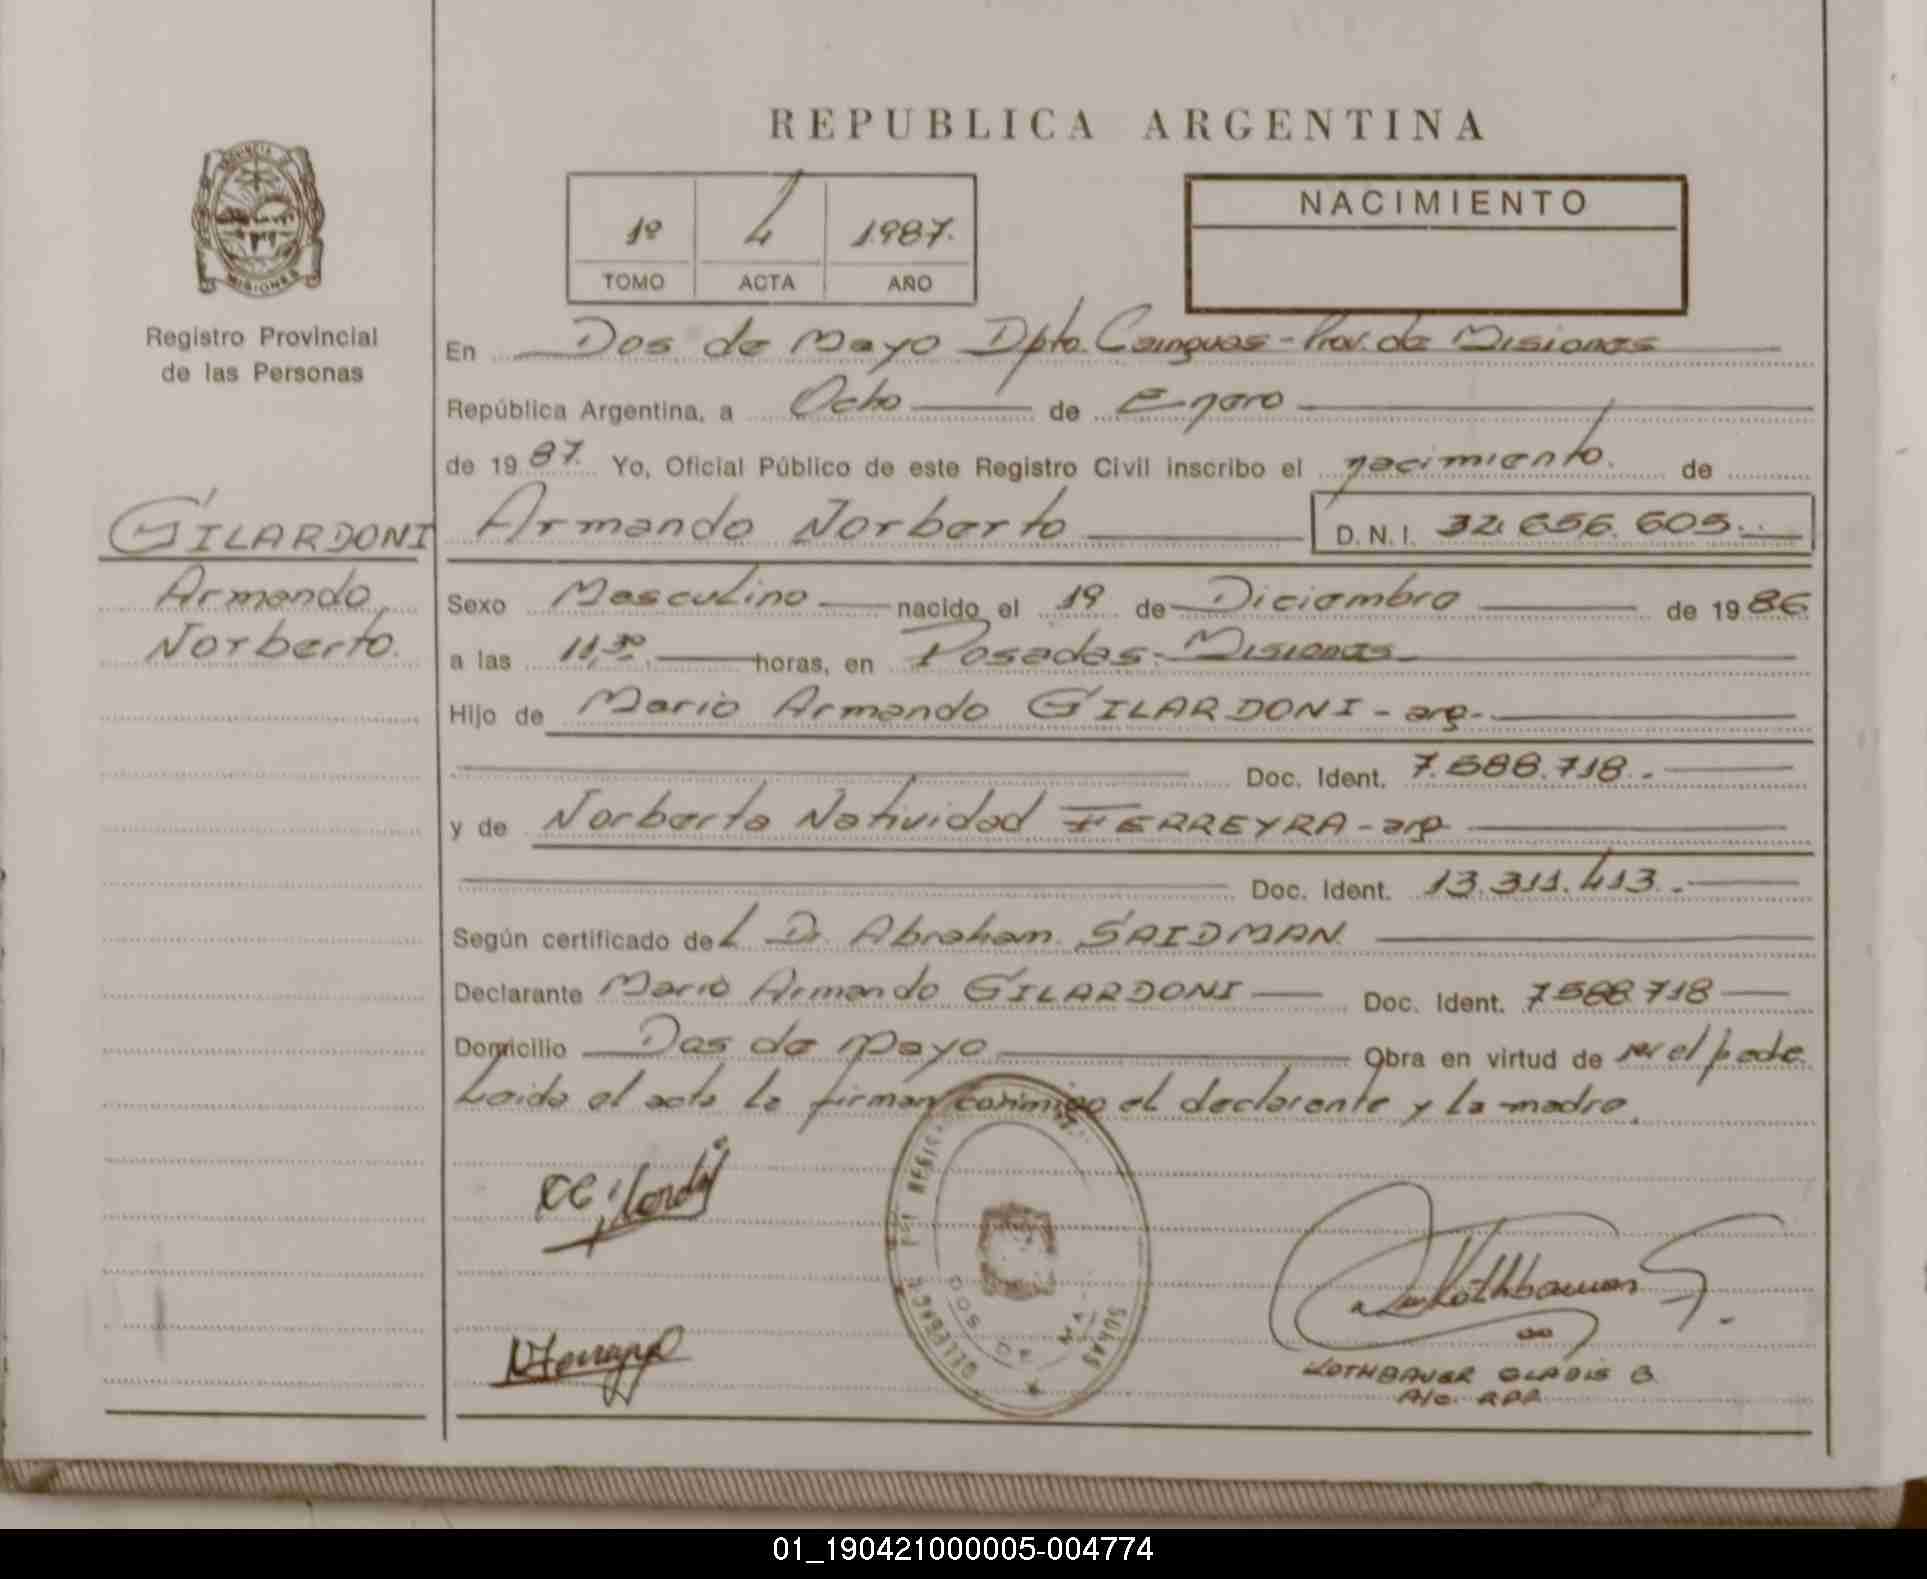 REPUBLICA ARGENTINA
PROVINCIA DE
MISIONES
Registro Provincial
de las Personas
1º 4 1987.
TOMO ACTA AÑO
NACIMIENTO
En Dos de Mayo Dpto. Cainguas - Prov. de Misiones
República Argentina, a Ocho de Enero
de 1987. Yo, Oficial Público de este Registro Civil inscribo el nacimiento. de
GILARDONI Armando Norberto D.N.I. 32.656.605.
Armando
Norberto.
Sexo Masculino nacido el 19 de Diciembre de 1986
a las 11,30 horas, en Posadas - Misiones
Hijo de Mario Armando GILARDONI - arg-
Doc. Ident. 7.588.718.-
y de Norberta Natividad FERREYRA - arg
Doc. Ident. 13.311.413.-
Según certificado del Dr Abraham SAIDMAN
Declarante Mario Armando GILARDONI Doc. Ident. 7588718
Domicilio Dos de Mayo Obra en virtud de ser el padre
Leida el acta la firman conmigo el declarante y la madre.
DOS DE
NFerreyra
KOTHBAUER GLADIS B.
A/c. RPP
01_190421000005-004774